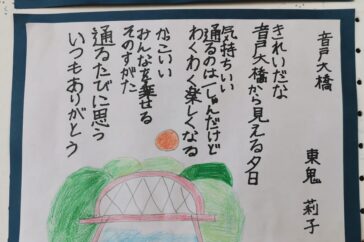 音戸大橋
東鬼 莉子
きれいだな
音戸大橋から見える夕日
気持ちいい
通るのは一しゅんだけど
わくわく楽しくなる
かっこいい
みんなを乗せる
そのすがた
通るたびに思う
いつもありがとう